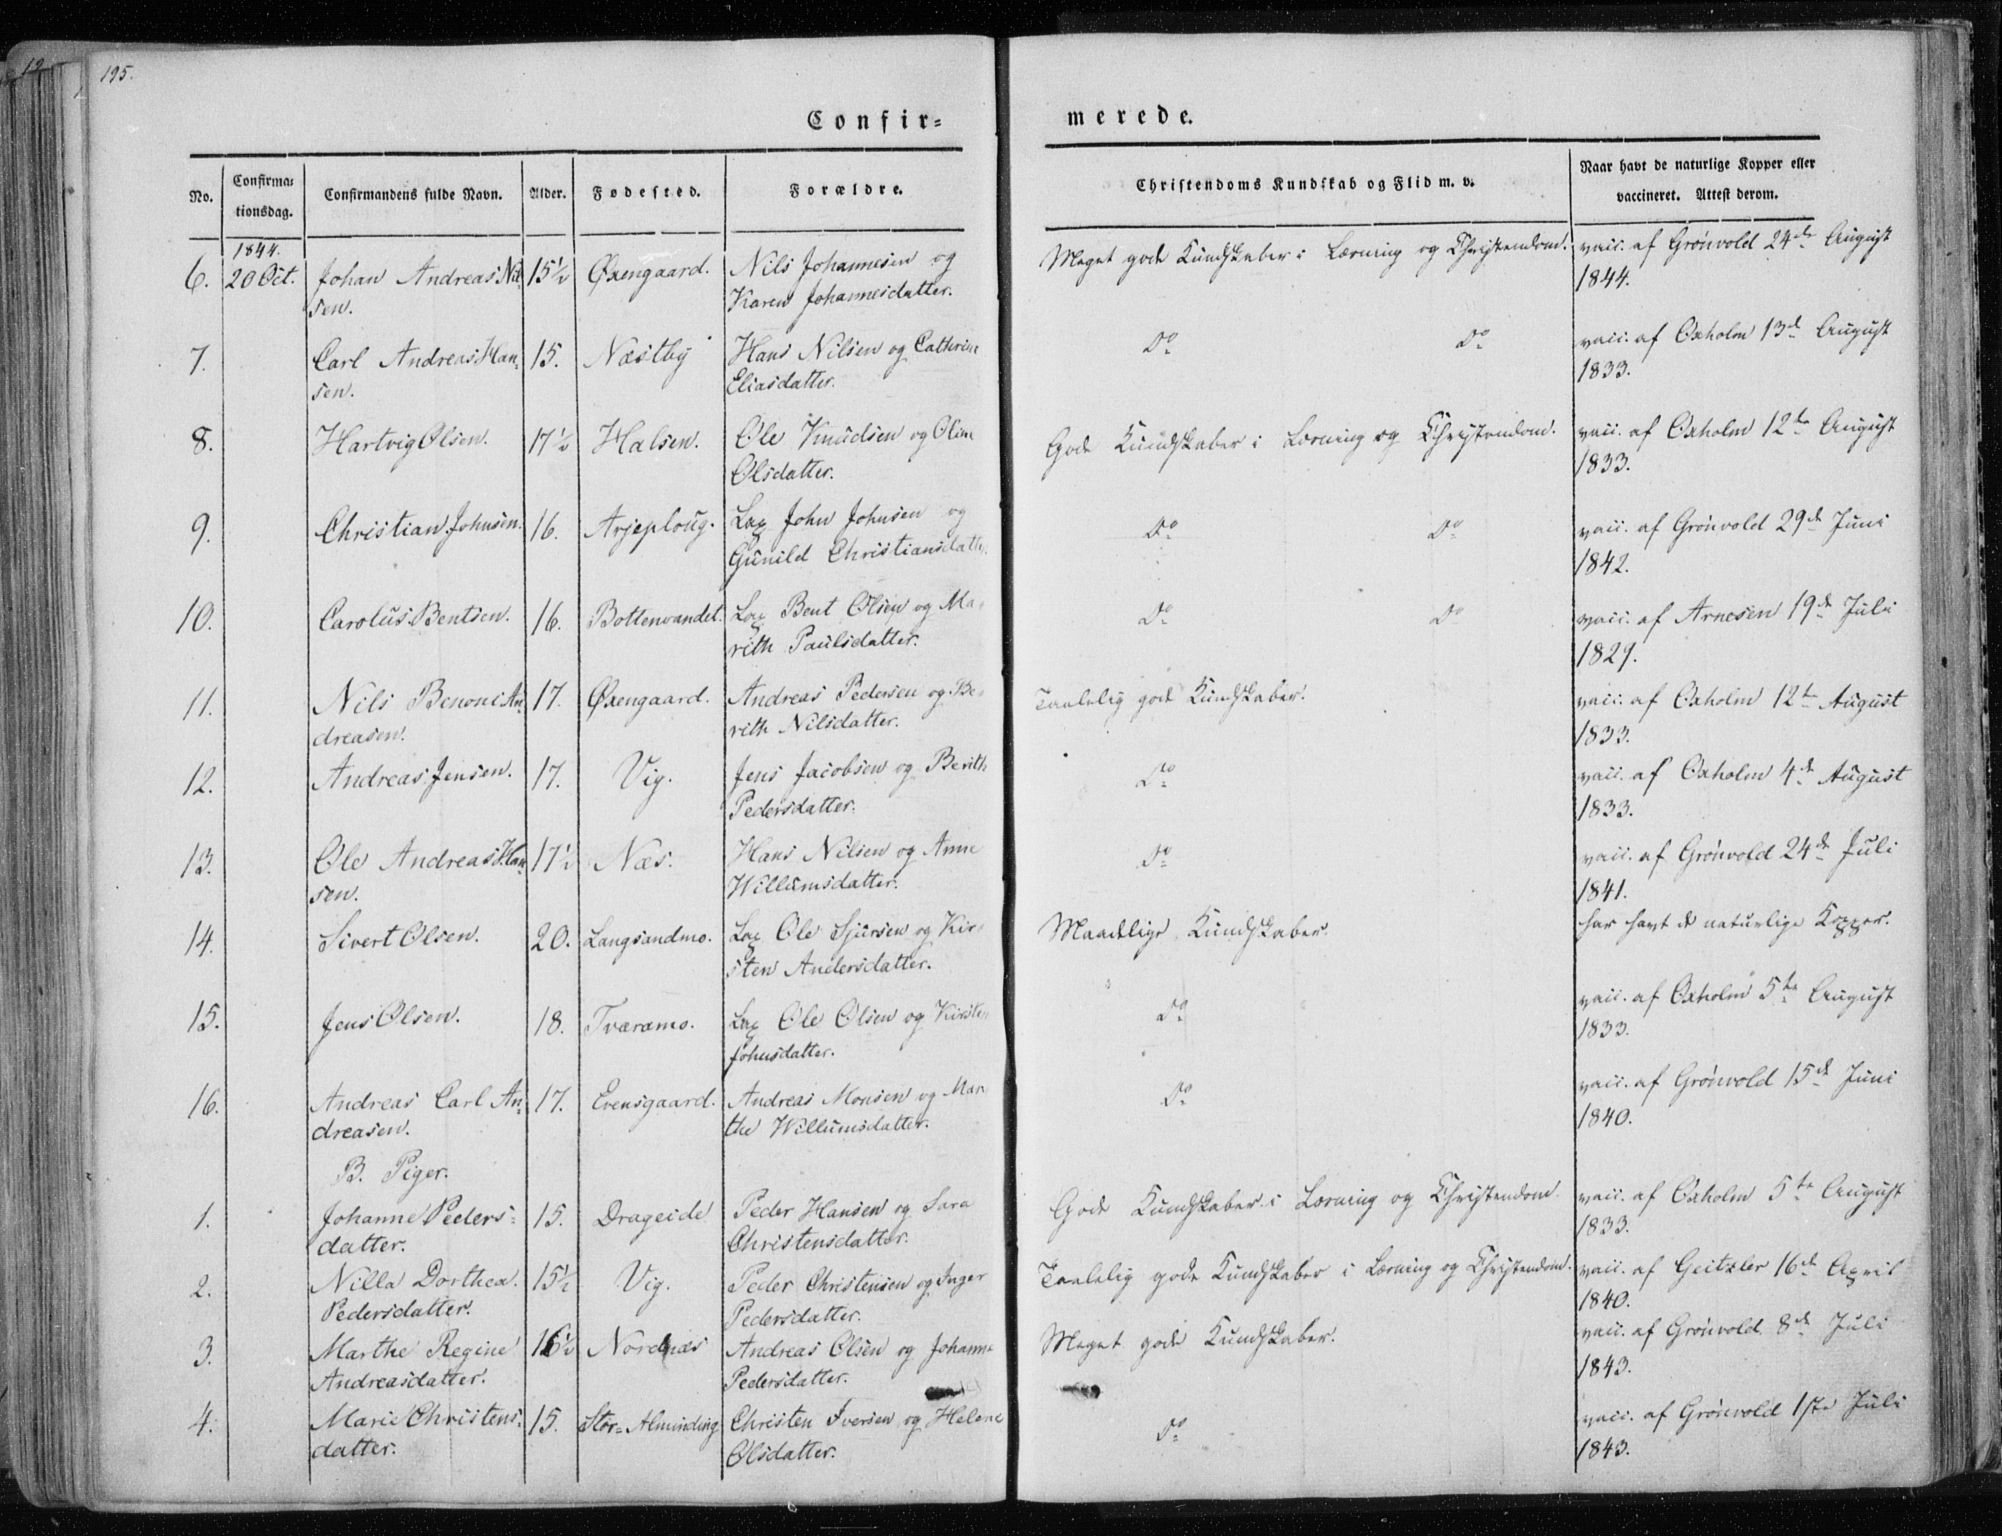 195.
Confir=
merede.
No.
Confirma=
tionsdag.
Confirmandens fulde Navn.
Alder.
Fødested.
Forældre.
Christendoms Kundskab og Flid m. v.
Naar havt de naturlige Kopper eller
vaccineret. Attest derom.
1844.
6. 20 Oct. Johan Andreas Nil 15½ Øxengaard. Nils Johannesen og Meget gode Kundskaber i Læsning og Christendom. vacc. af Grönvold 24de August
sen. Karen Johannesdatter. 1844.
7. Carl Andreas Han= 15. Næstby Hans Nilsen og Cathrine Do Do vacc. af Oxholm 13de August
sen. Eliasdatter. 1833.
8. Hartvig Olsen. 17½ Halsen. Ole Knudsen og Oline Gode Kundskaber i Læsning og Christendom. vacc. af Oxholm 12te August
Olsdatter. 1833.
9. Christian Johnsen. 16. Arjeploug. Lap John Johnsen og Do Do vacc. af Grönvold 29de Juni
Gunild Christiansdatter. 1842.
10. Carolus Bentsen. 16. Bottenvandet. Lap Bent Olsen og Ma= Do Do vacc. af Arnesen 19de Juli
rith Paulsdatter. 1829.
11. Nils Benoni An= 17. Øxengaard. Andreas Pedersen og Be= Taalelig gode Kundskaber. vacc. af Oxholm 12te August
dreasen. rith Nilsdatter. 1833.
12. Andreas Jensen. 17. Vig. Jens Jacobsen og Berith Do vacc. af Oxholm 4de August
Pedersdatter. 1833.
13. Ole Andreas Han= 17½ Næs. Hans Nilsen og Anne Do vacc. af Grönvold 24de Juli
sen. Willumsdatter. 1841.
14. Sivert Olsen. 20. Langsandmo. Lap Ole Sjursen og Kir= Maadelige Kundskaber. har havt de naturlige Kopper.
sten Andersdatter.
15. Jens Olsen. 18. Tværåmo. Lap Ole Olsen og Kirsten Do vacc. af Oxholm 5te August
Johnsdatter. 1833.
16. Andreas Carl An= 17. Evensgaard. Andreas Monsen og Mar Do vacc. af Grönvold 15de Juni
dreasen. the Willumsdatter. 1840.
B. Piger.
1. Johanne Peders= 15. Drageide Peder Hansen og Sara Gode Kundskaber i Læsning og Christendom. vacc. af Oxholm 5te August
datter. Christensdatter. 1833.
2. Nilla Dorthea 15½ Vig. Peder Christensen og Inger Taalelig gode Kundskaber i Læsning og Christendom. vacc. af Geitzler 16de April
Pedersdatter. Pedersdatter. 1840.
3. Marthe Regine 16½ Nordnæs Andreas Olsen og Johanne Meget gode Kundskaber. vacc. af Grönvold 8de Juli
Andreasdatter. Pedersdatter. 1843.
4. Marie Christens= 15. Stor=Alminding Christen Iversen og Helene Do vacc. af Grönvold 1ste Juli
datter. Olsdatter. 1843.